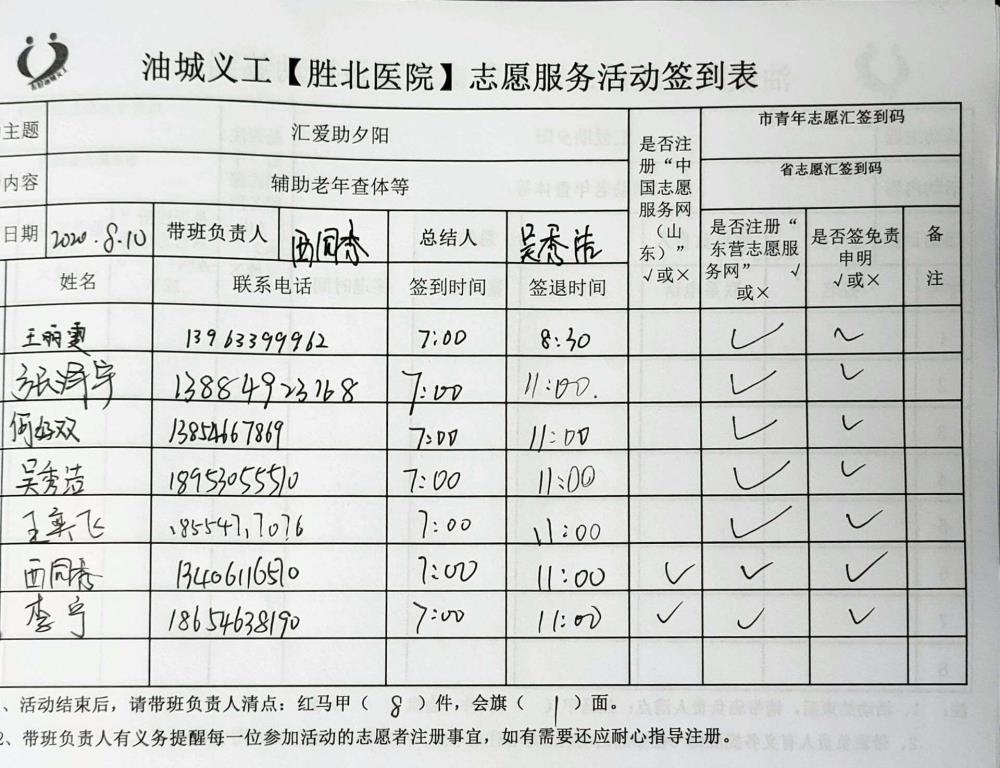 油城义工【胜北医院】志愿服务活动签到表
主题 汇爱助夕阳 是否注册“中国志愿服务网（山东）”√或× 市青年志愿汇签到码
内容 辅助老年查体等 省志愿汇签到码
日期 2020.8.10 带班负责人 西同秀 总结人 吴秀洁 是否注册“东营志愿服务网” √或× 是否签免责申明√或× 备注
姓名 联系电话 签到时间 签退时间
王丽雯 13963399962 7:00 8:30 ✓
张泽宇 13884923768 7:00 11:00. ✓ ✓
何好双 13854667869 7:00 11:00 ✓ ✓
吴秀洁 18953055510 7:00 11:00 ✓ ✓
王奕飞 7:00 11:00 ✓ ✓
西同秀 13406116510 7:00 11:00 ✓ ✓ ✓
李宁 18654638190 7:00 11:00 ✓ ✓ ✓
、活动结束后，请带班负责人清点：红马甲（ 8 ）件，会旗（ 1 ）面。
2、带班负责人有义务提醒每一位参加活动的志愿者注册事宜，如有需要还应耐心指导注册。